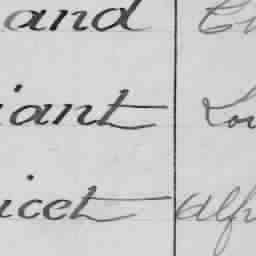 and
iant Lou
icet Alfr